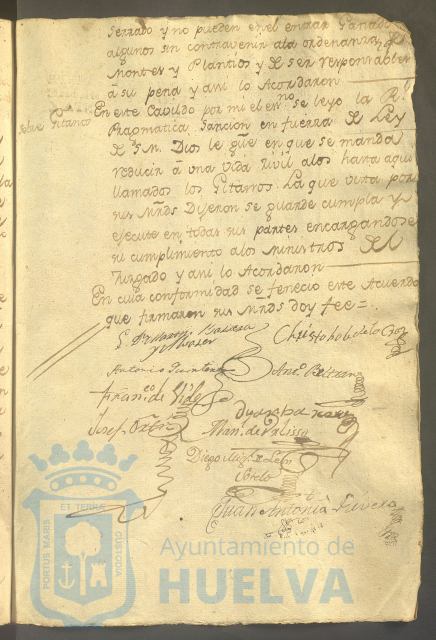 serrado y no pueden en el entrar Ganados
algunos sin contravenir ala ordenanza de
Montes y Plantios y de ser responsables
á su pena y asi lo Acordaron
sobre Gitanos
En este Cavildo por mi el essno se leyo la Rl.
Pragmatica Sancion en fuerza de Ley
de S.M. Dios le gue en que se manda
reducir á una vida zivil alos hasta aqui
llamados los Gitanos. La que vista por
sus Mrds Dijeron se guarde cumpla y
ejecute en todas sus partes encargandose
su cumplimiento alos Ministros del
Juzgado y asi lo Acordaron
En cuia conformidad se fenecio este Acuerdo
que firmaron sus Mrds doy fee =
Christobal de la
Antonio
Anto. Beltran
Franco. de
Josef
Man. de
Diego
Juan Antonio Rivera
ET TERRÆ
PORTUS MARIS
CUSTODIA
Ayuntamiento de
HUELVA